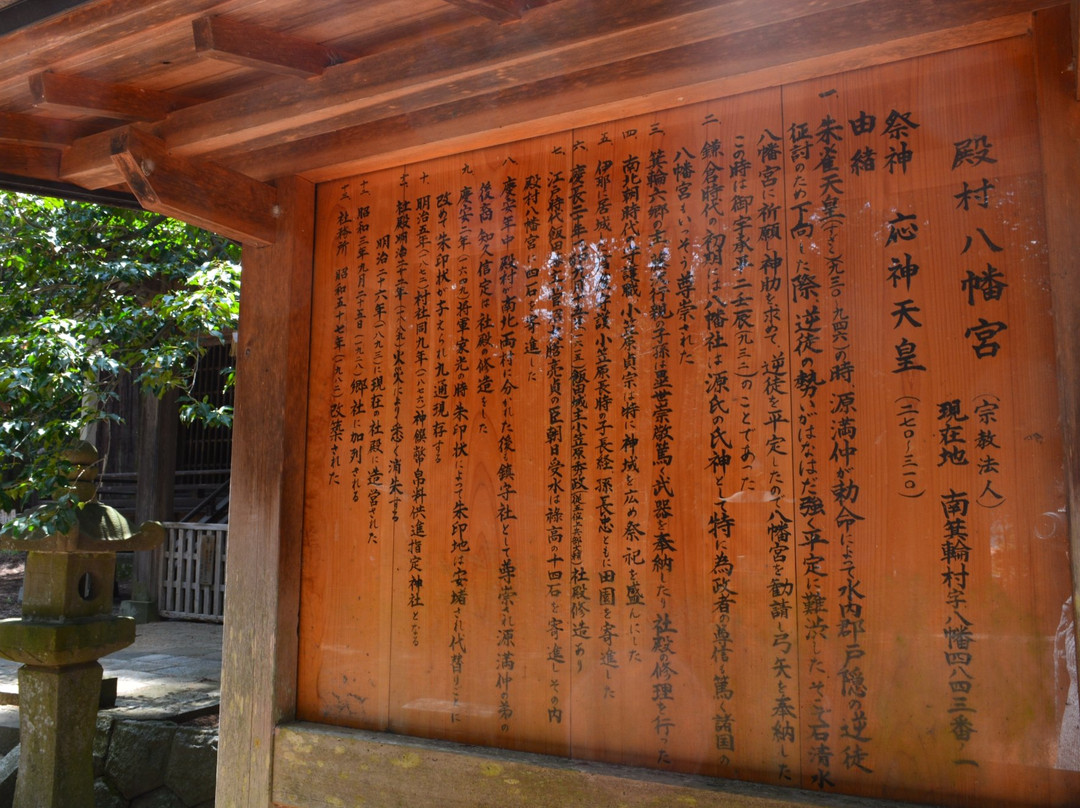 殿村八幡宮
（宗教法人）
現在地 南箕輪村字八幡四八四三番ノ一
祭神 応神天皇（二七〇～三一〇）
由緒
一、朱雀天皇（九三〇～九四六）の時源満仲が勅命によって水内郡戸隠の逆徒
征討のため下向した際、逆徒の勢いがはなはだ強く平定に難渋した、そこで石清水
八幡宮に祈願し神助を求めて、逆徒を平定したので八幡宮を勧請し弓矢を奉納した
この時は御宇承平二壬辰（九三二）のことであった
二、鎌倉時代の初期には八幡社は源氏の氏神として特に為政者の尊信も篤く諸国の
八幡宮もいっそう尊崇された
三、箕輪六郷の主 行親の子孫は累世崇敬篤く武器を奉納したり社殿の修理を行った
四、南北朝時代の守護職小笠原貞宗は特に神域を広め祭祀を盛んにした
五、伊那 居城 守護小笠原長時の子長経孫長忠ともに田園を寄進した
六、慶長二十年 飯田城主小笠原秀政 社殿修造あり
七、江戸時代飯田 亮貞の臣朝日受永は禄高の十四石を寄進しその内
殿村八幡宮に四石を寄進した
八、慶安年中殿村が南北両村に分かれた後も鎮守社として尊崇され源満仲の弟の
後裔知久信定は社殿の修造をした
九、慶安二年（一六四九）将軍家光の時朱印状によって朱印地は安堵され代替りごとに
改めて朱印状が与えられ九通現存する
十、明治五年（一八七二）村社同九年（一八七六）神饌幣帛料供進指定神社となる
十一、社殿明治二十二年（一八八九）火災により悉く消失する
明治二十六年（一八九三）に現在の社殿に造営された
十二、昭和三年九月二十五日（一九二八）郷社に加列される
十三、社務所 昭和五十七年（一九八二）改築された